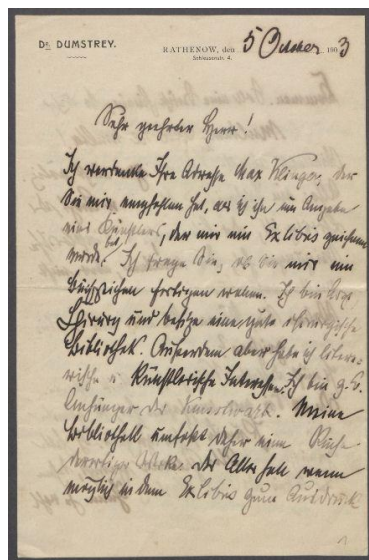 Dr. DUMSTREY.
RATHENOW, den 5 October 1903
Schleusenstr. 4.
Sehr geehrter Herr!
Ich verdanke Ihre Adresse Max Klinger, der
Sie mir empfohlen hat, als ich ihn um Angabe
eines Künstlers, der mir ein Exlibris zeichnen
würde, bat. Ich frage Sie, ob Sie mir ein
Bücherzeichen fertigen wollen. Ich bin Arzt
Chirurg und besitze eine gute chirurgische
Bibliothek. Ausserdem aber habe ich litera-
rische u. künstlerische Interessen. Ich bin z. B.
Anhänger der. Meine
Bibliothek umfasst daher eine Reihe
derartiger Werke der alles soll wenn
möglich in dem Exlibris zum Ausdruck